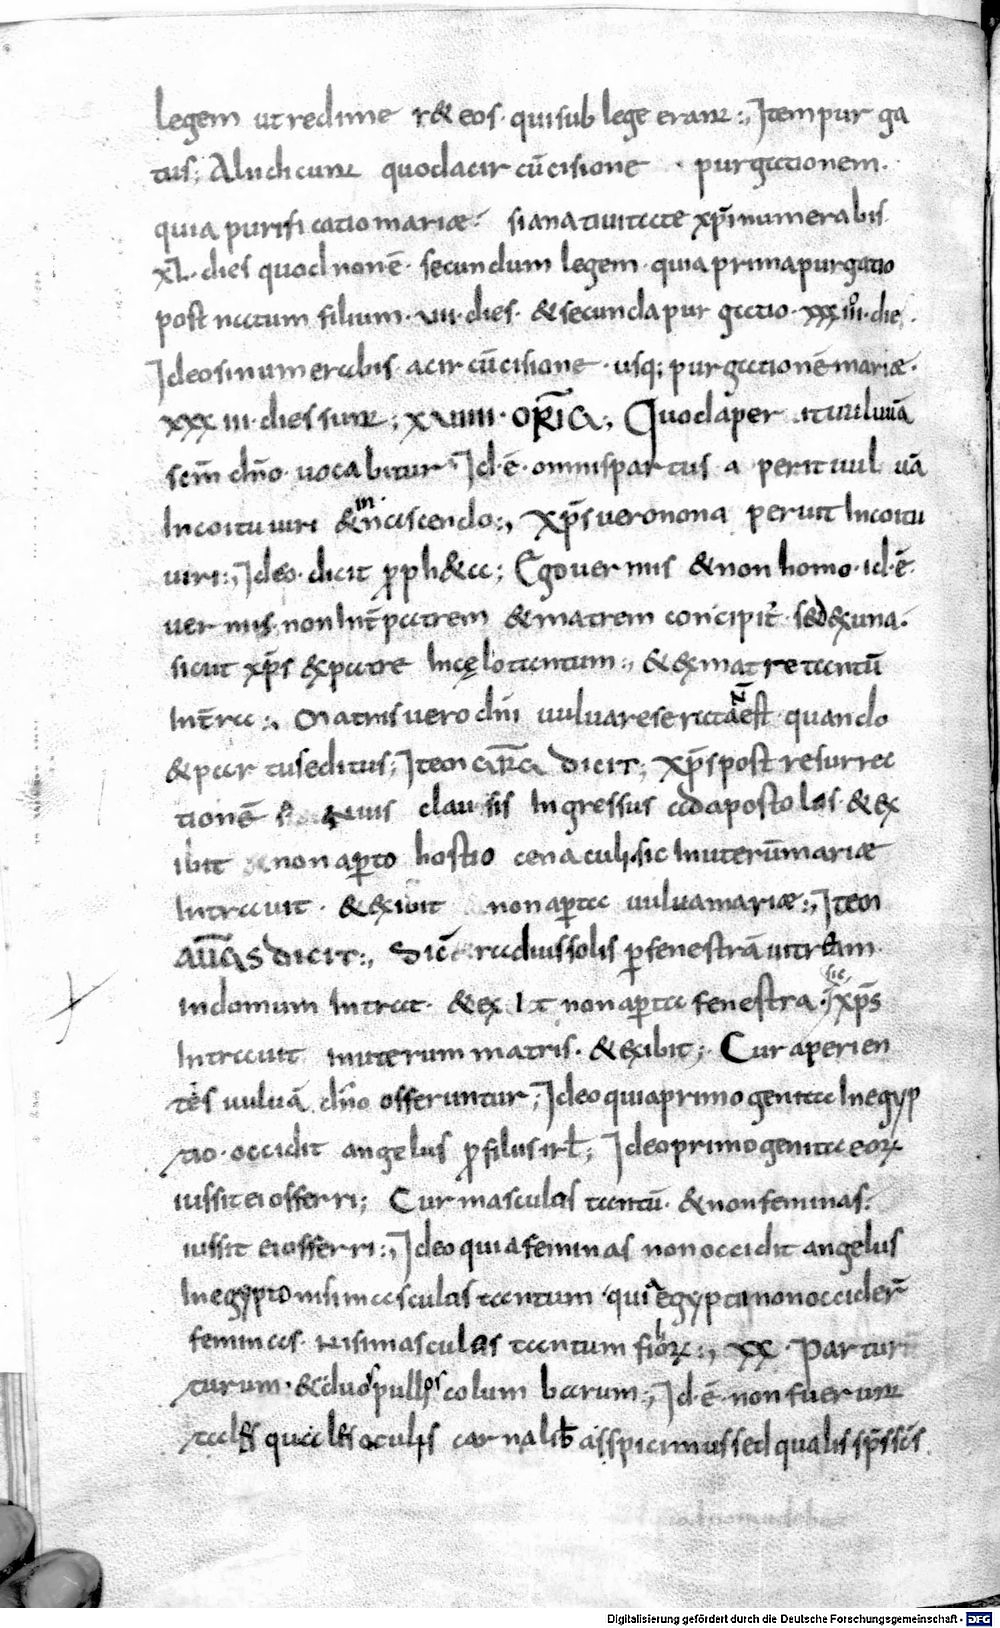 legem ut redime r& eos · qui sub lege erant :, Item pur ga
tus ; Alii dicunt quod a circũcisione · purgationem ·
quia purificatio mariae · si a natiuitate xp̃i numerabis
XL · dies quod non ẽ · secundum legem · quia prima purgatio
post natum filium · VIII · dies · & secunda pur gatio · XXXIII · die · .
Ideo si numerabis a circũcisione · usq; purgationẽ mariae ·
XXXIII · dies sunt ; XXVIIII · OR̃ĪA ; Quod aper it uuluã
sc̃m dñõ · uocabitur ; Id · ẽ · omnis partus a perit uul uã
In coitu uiri & in nascendo :, Xp̃s uero non a peruit In coitu
uiri :, Ideo · dicit p̱ph&a ; Ego uer mis & non homo · id · ẽ ·
uer mis · non Int̃ patrem & matrem concipit̃ · sed ex una ·
sicut xp̃s ex patre In cęlo tantum :, & ex matre tantũ
In t̃ra :, Matris uero dñi uulua reserata ñ est quando
& par tus editus ; Item dicit ; Xp̃s post resurrec
tionẽ clausis Ingressus ad apostolos · & ex
ibit non ap̱to hostio cenaculi · sic In uterũ mariae
Intrauit · & exibit non ap̱ta uulua mariae :, Item
dicit :, radius solis p̱ fenestrã uitream
in domum Intrat · & ex it non ap̱ta fenestra · sic xp̃s
Intrauit in uterum matris · & exibit ; Cur aperien
tes uuluã dñõ offeruntur ; Ideo quia primogenita In egyp
tio · occidit angelus p̱ filiis irl̃ ; Ideo primogenita eor̃
iussit ei offerri ; Cur masculos tantũ · & non feminas ·
iussit ei offerri :, Ideo quia feminas non occidit angelus
In egypto nisi masculos tantum · quia egyptii non occider̃
feminas · nisi masculos tantum filior̃ :, XX · Par tur
turum · & duos pullos columbarum :, Id · ẽ · non fuerunt
tales quales oculis carnalib̃ asspicimus sed qualis sp̃s sc̃s
Digitalisierung gefördert durch die Deutsche Forschungsgemeinschaft - DFG